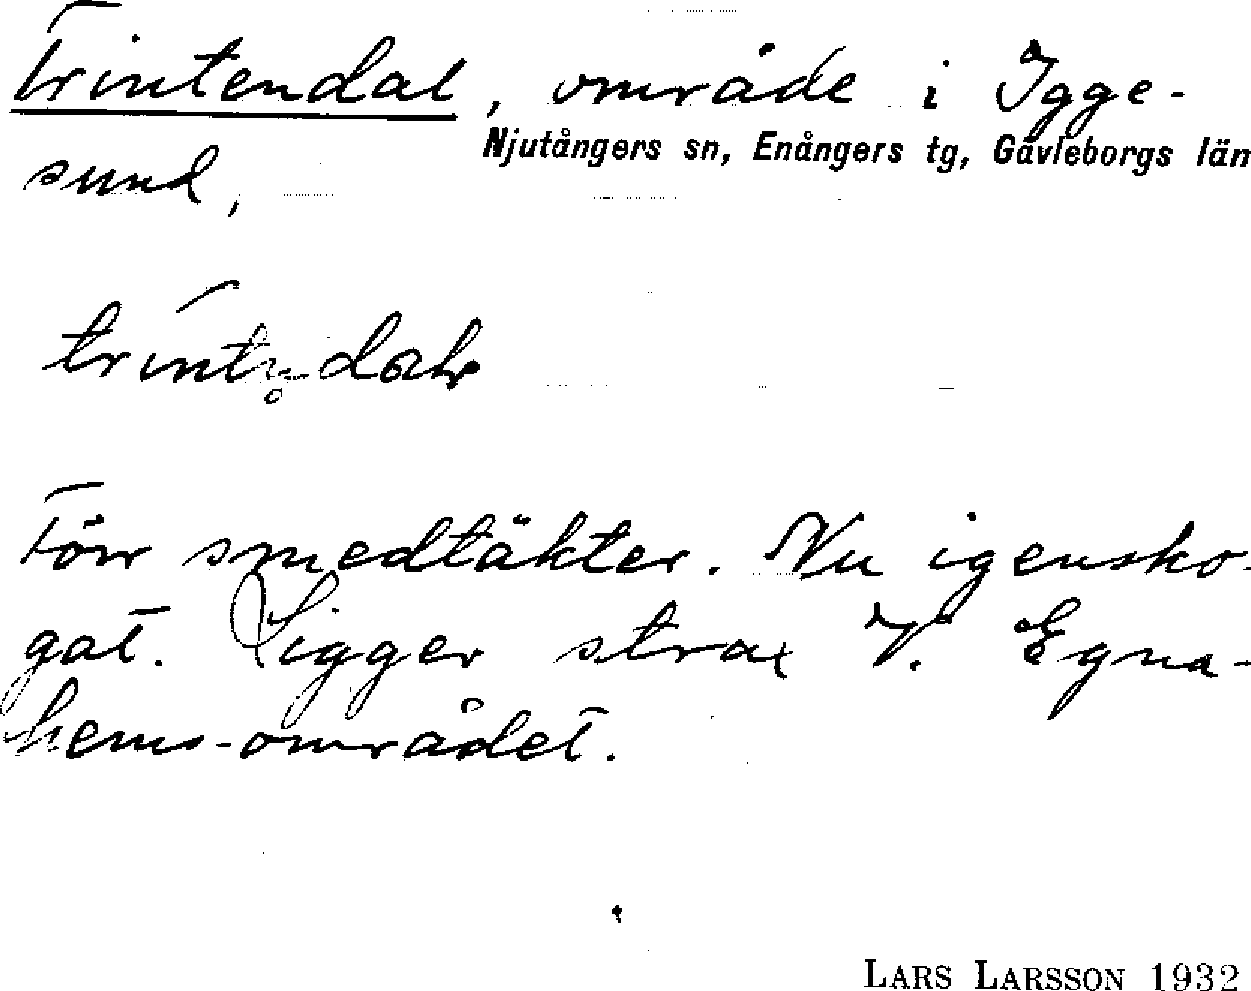 Trintendal, område i Igge-
Njutångers sn, Enångers tg, Gävleborgs län
sund,
Förr smedtäkter. Nu igensko-
gat. Ligger strax V. Egna-
hems-området.
LARS LARSSON 1932